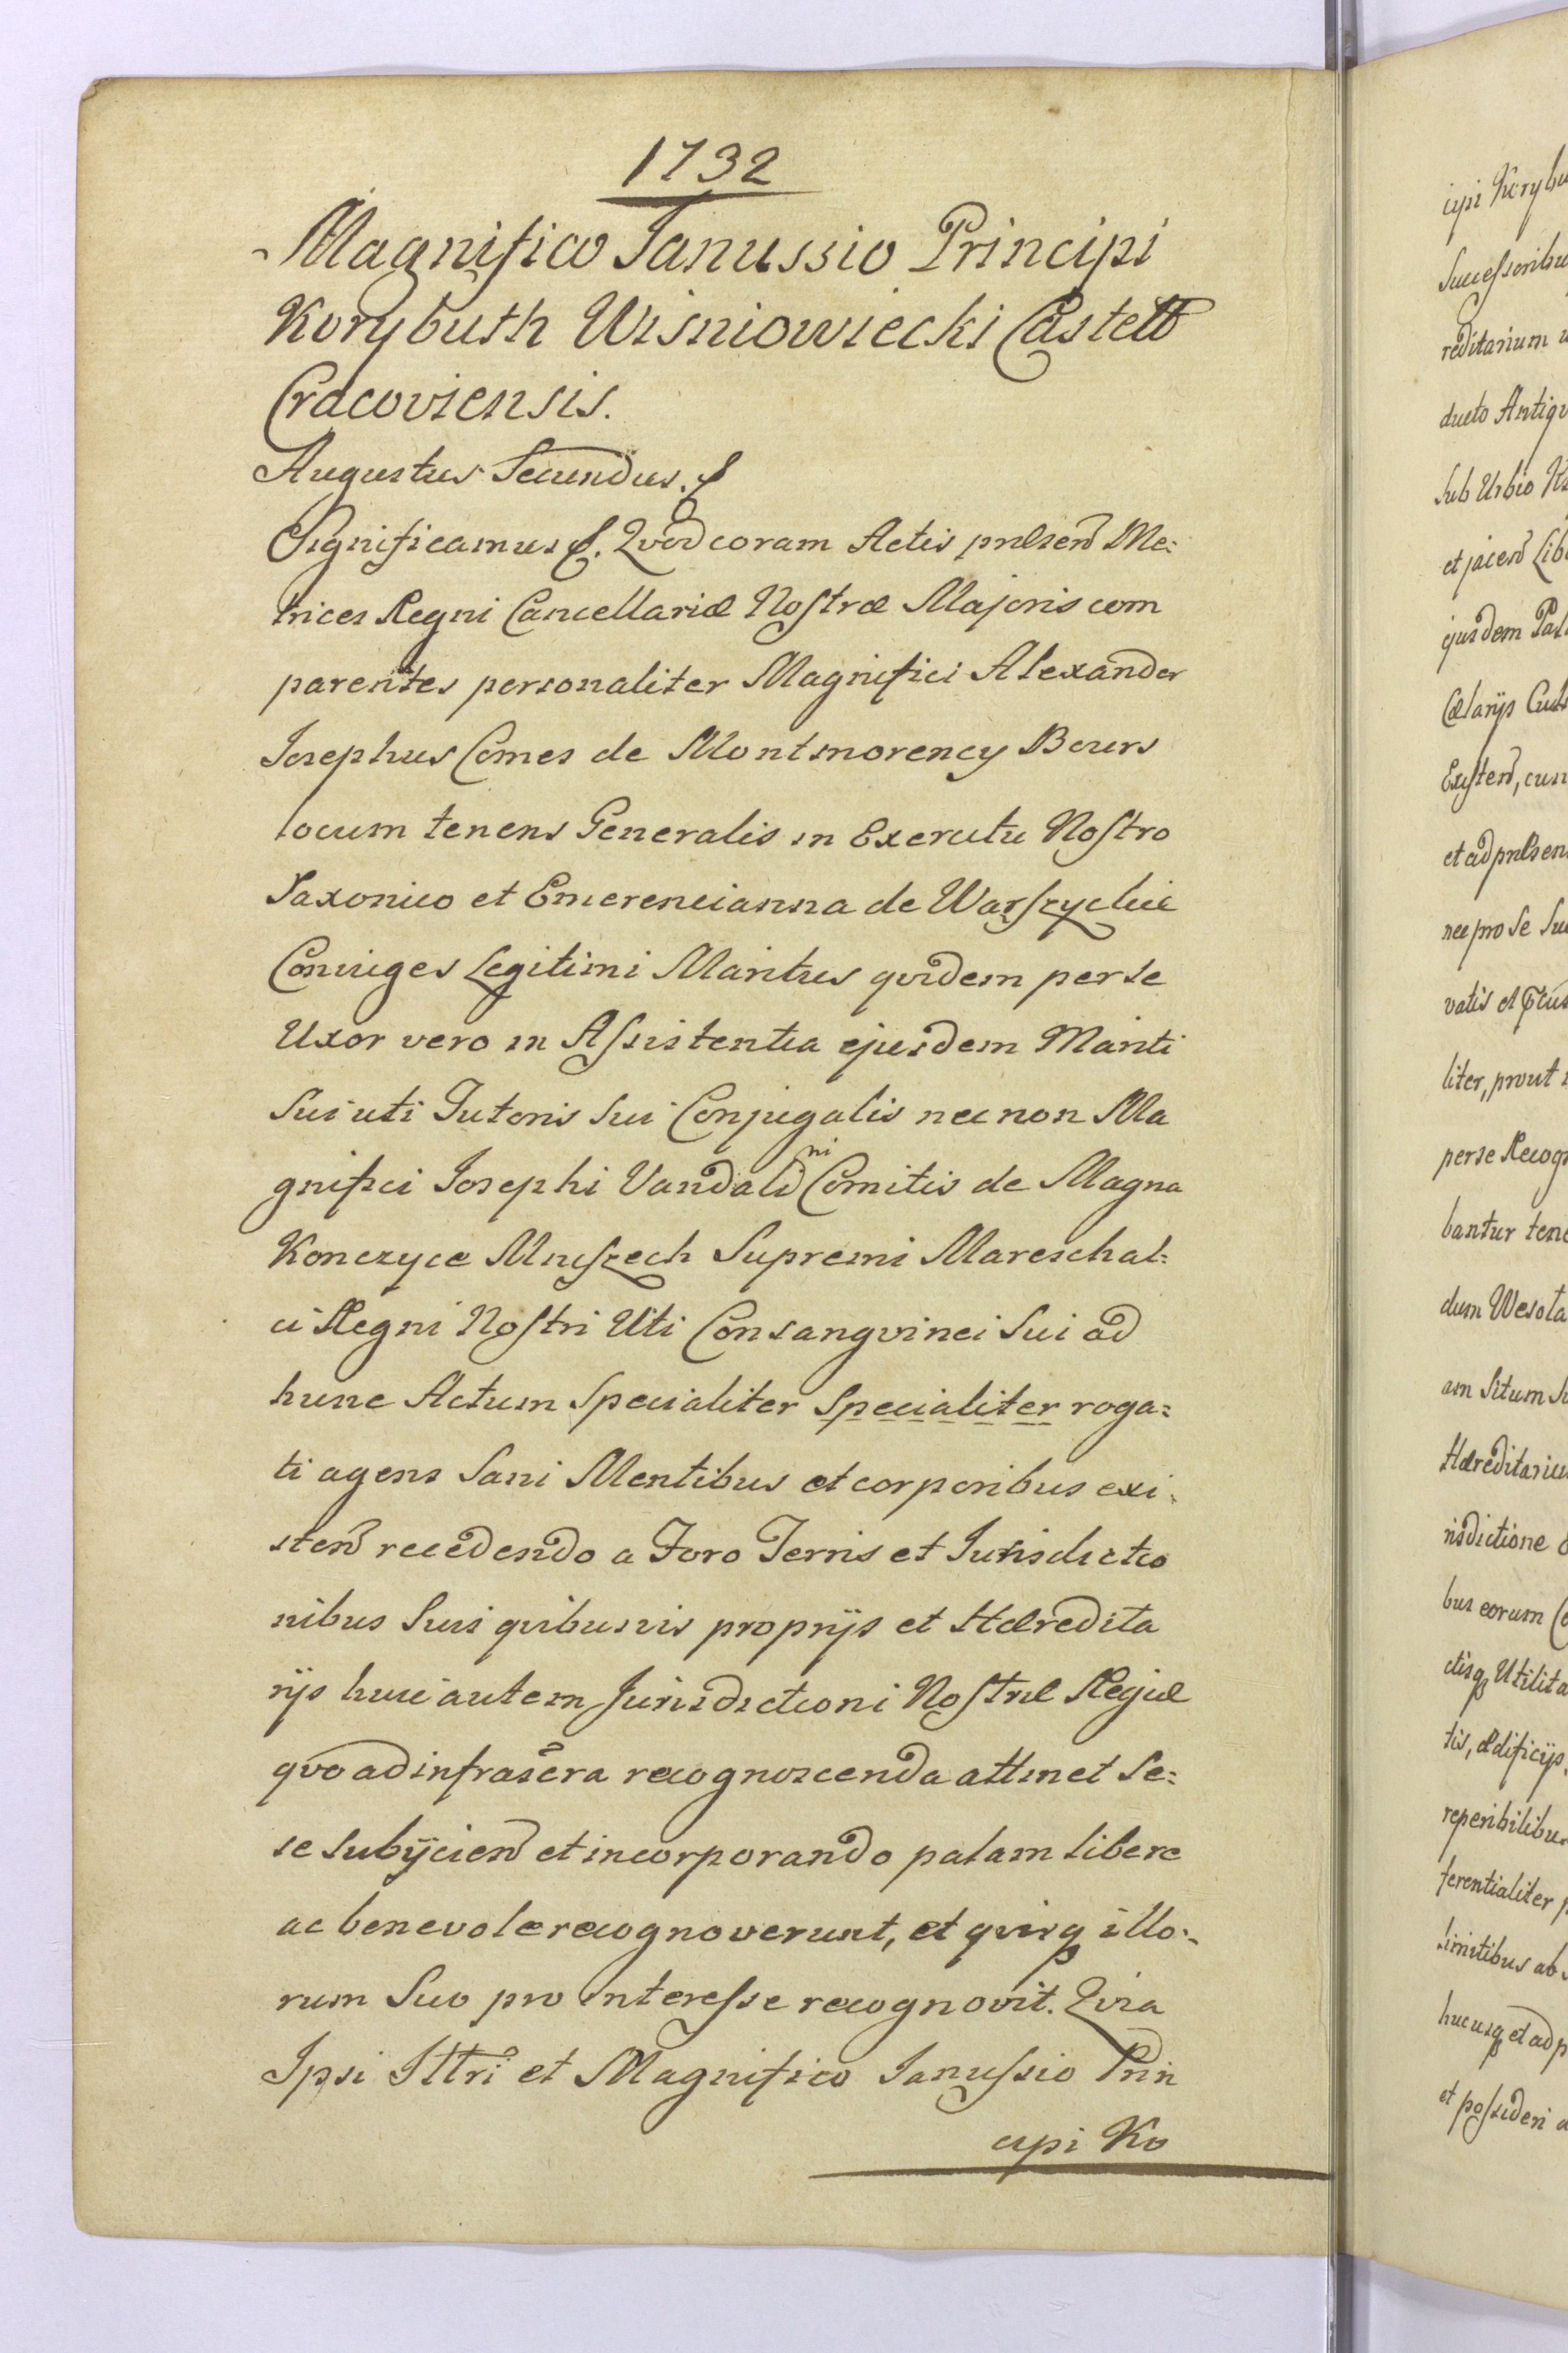 1732
Magnifico Janussio Principi
Korybuth Wisniowiecki Castell
Cracoviensis.
Augustus Secundus.
Significamus Qvod coram Actis pnlsend Me:
trices Regni Cancellariæ Nostræ Majoris com
parentes personaliter Magnifici Alexander
Josephus Comes de Montmorency Bours
locum tenens Generalis in Exercitu Nostro
Saxonico et Emerencianna de Warszyckie
Coniuges Legitimi Maritus qvidem per se
Uxor vero in Assistentia ejusdem Mariti
Sui uti Tutoris Sui Conjugalis nec non Ma
gnifici Josephi Vandalini Comitis de Magna
Konczyce Mniszech Supremi Mareschal:
ci Regni Nostri Uti Consangvinei Sui ad
hunc Actum Specialiter Specialiter roga:
ti agens Sani Mentibus et corporibus exi:
stend recedendo a Foro Terris et Jurisdictio
nibus Suis qvibusvis proprijs et Hæredita
rijs huic autem Jurisdictioni Nostræ Regiæ
qvo ad infrascra recognoscenda attinet Se:
se Subijciend et incorporando palam libere
ac benevole recognoverunt, et qvisq illo:
rum Suo pro interesse recognovit. Qvia
Ipsi Illri et Magnifico Janussio Prin
cipi Ko
cipi Korybu
Successoribu
reditarium
ducto Antiqv
Sub Urbio
et jacend Lib
ejusdem Pal
Cælarijs
Existend, cum
et ad pnlsen
nec pro Se Su
vatis et
liter, prout
per se Recog
bantur tene
dum Wesola
am Situm Su
Hæreditariu
risdictione
bus eorum
ctisq Utilita
tis, ædificijs
reperibilibus
ferentialiter
limitibus ab
hucusq et ad p
et possideri